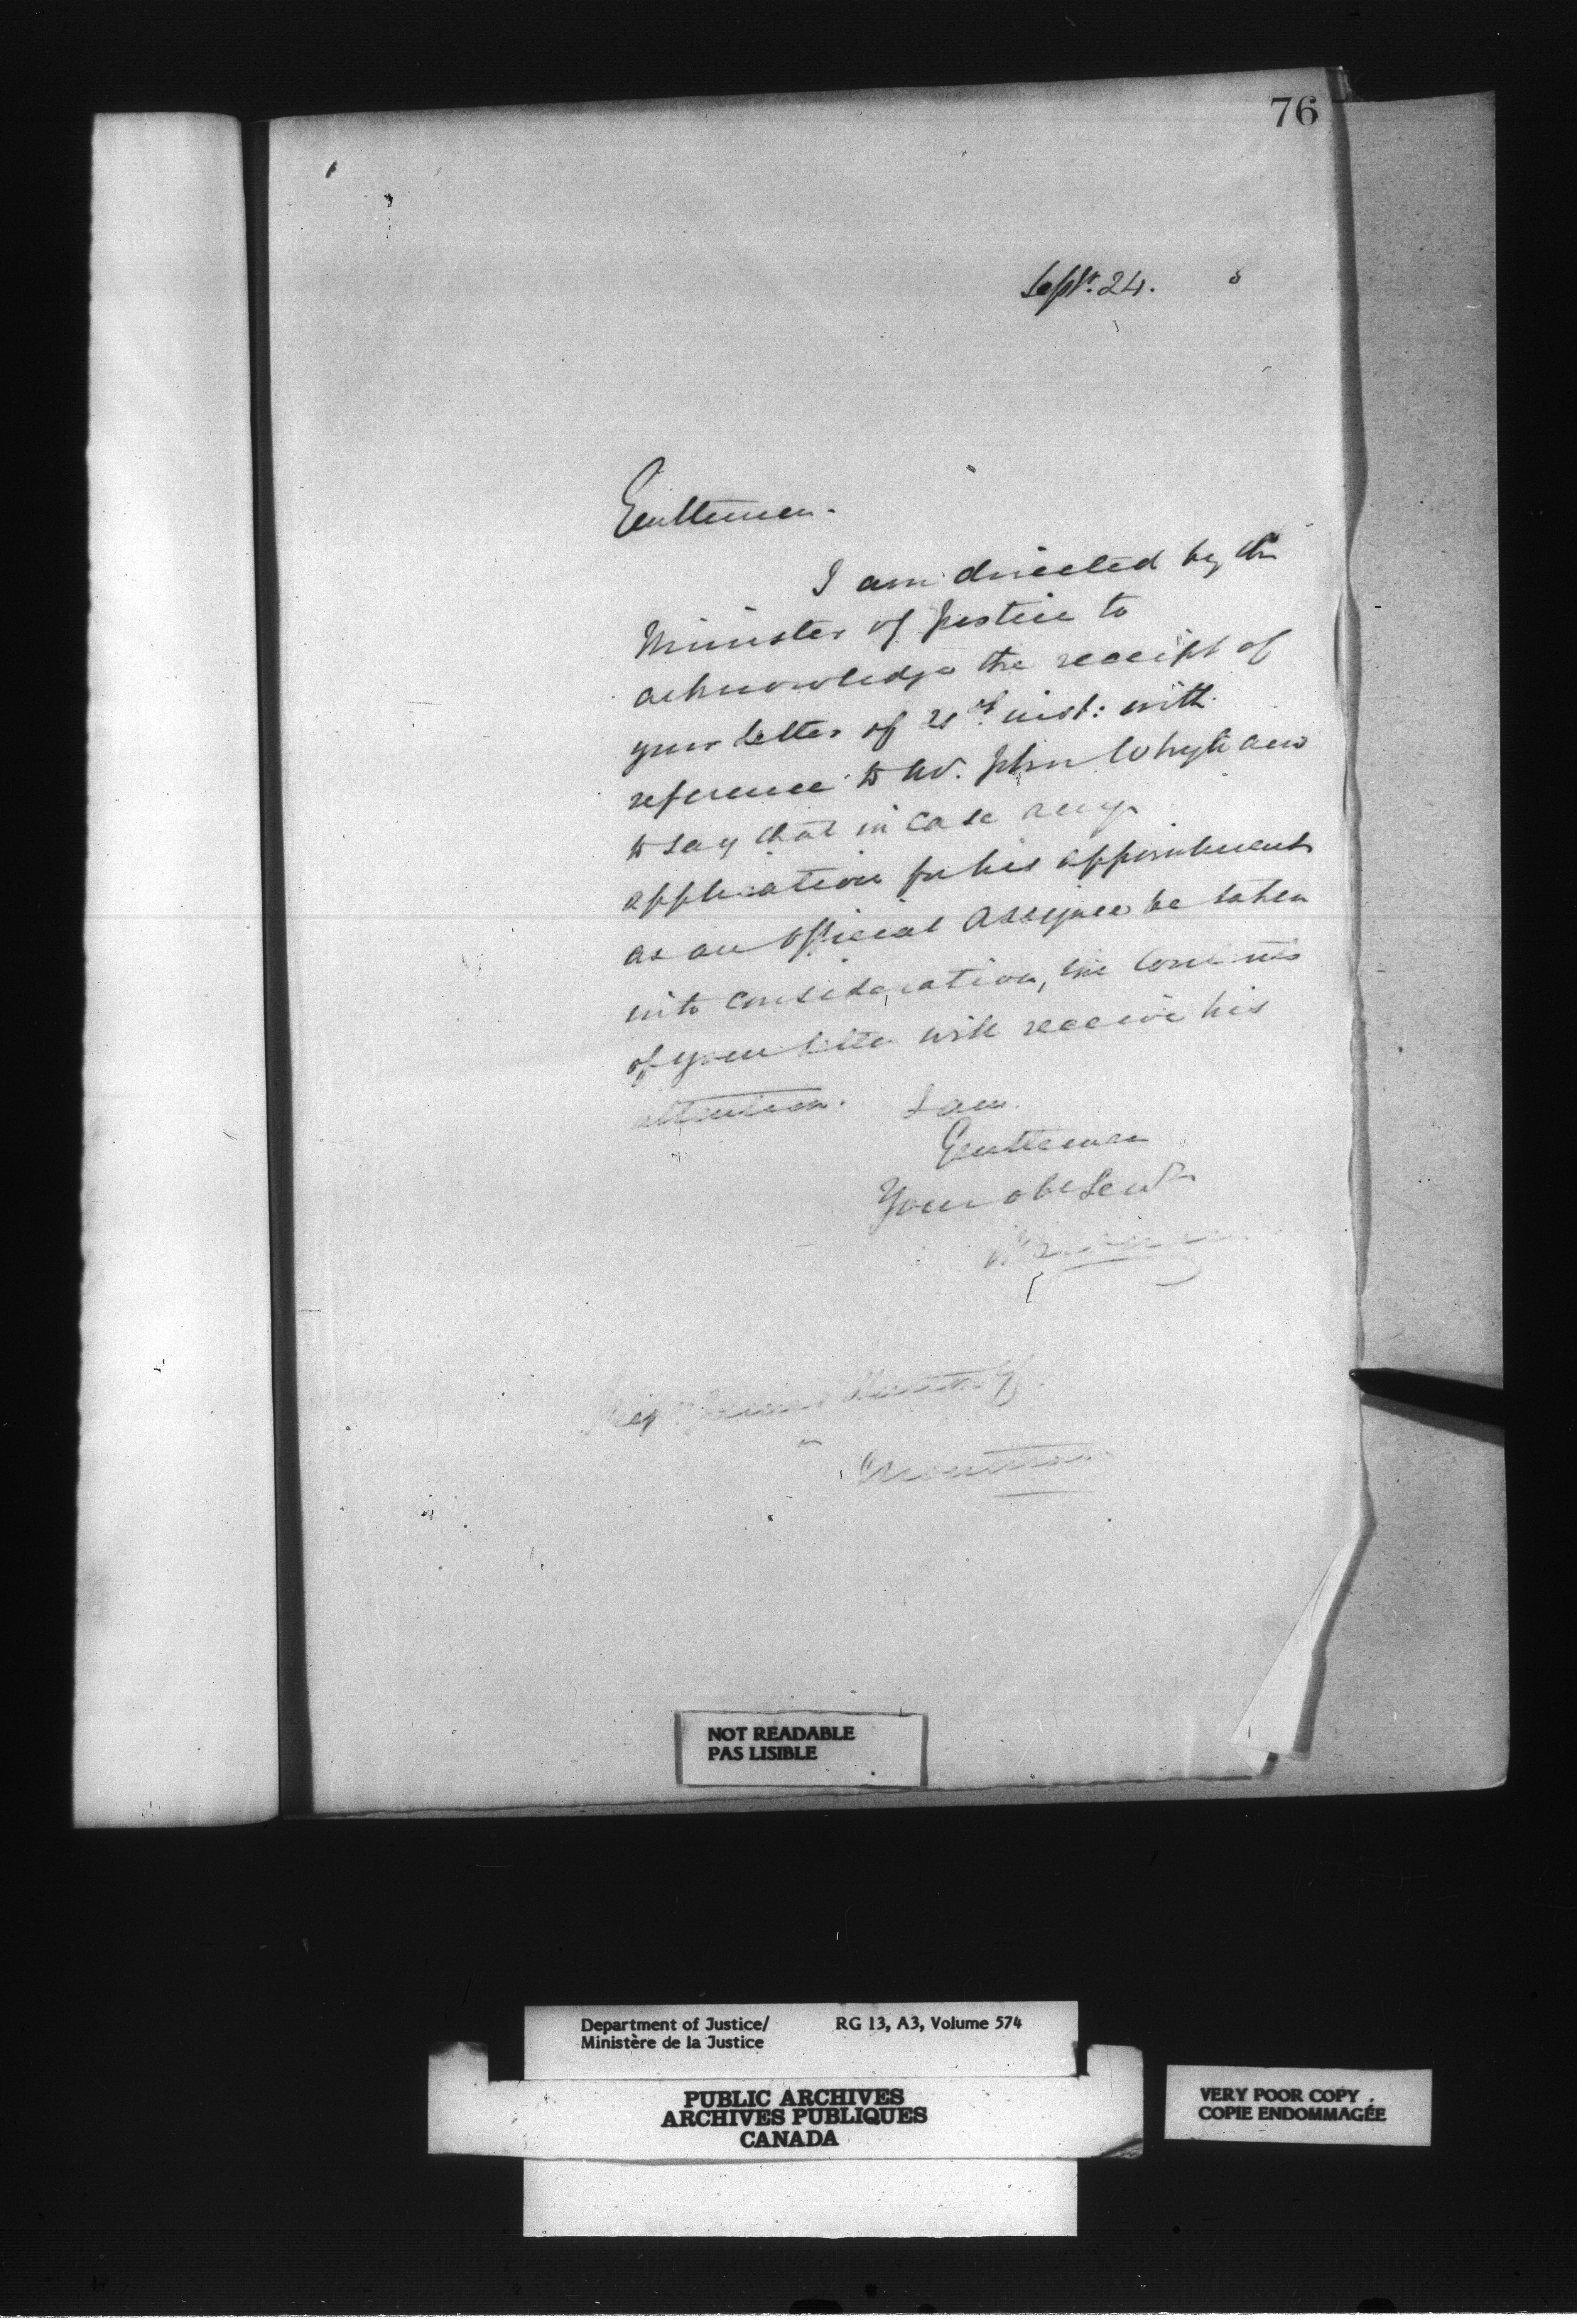 76
Sept. 24. 8
Gentlemen.
I am directed by the
Minister of Justice to
acknowledge the receipt of
your letter of inst: with
reference to John Whyte and
to say that in case any
application for his appointment
as an Official Assignee be taken
into consideration, the contents
of your letter will receive his
attention. I am
Gentlemen
Your obt Servt
Montreal
NOT READABLE
PAS LISIBLE
Department of Justice/ RG 13, A3, Volume 574
Ministère de la Justice
PUBLIC ARCHIVES
ARCHIVES PUBLIQUES
CANADA
VERY POOR COPY
COPIE ENDOMMAGÉE